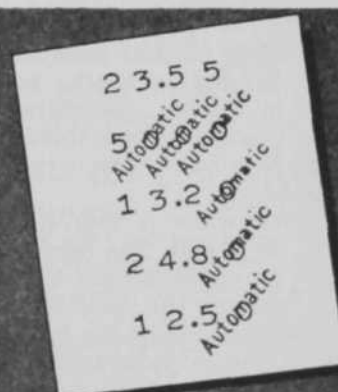 2 3.5 5
5 0 Automatic 0 Automatic 0 Automatic
1 3.2 0 Automatic
2 4.8 0 Automatic
1 2.5 0 Automatic